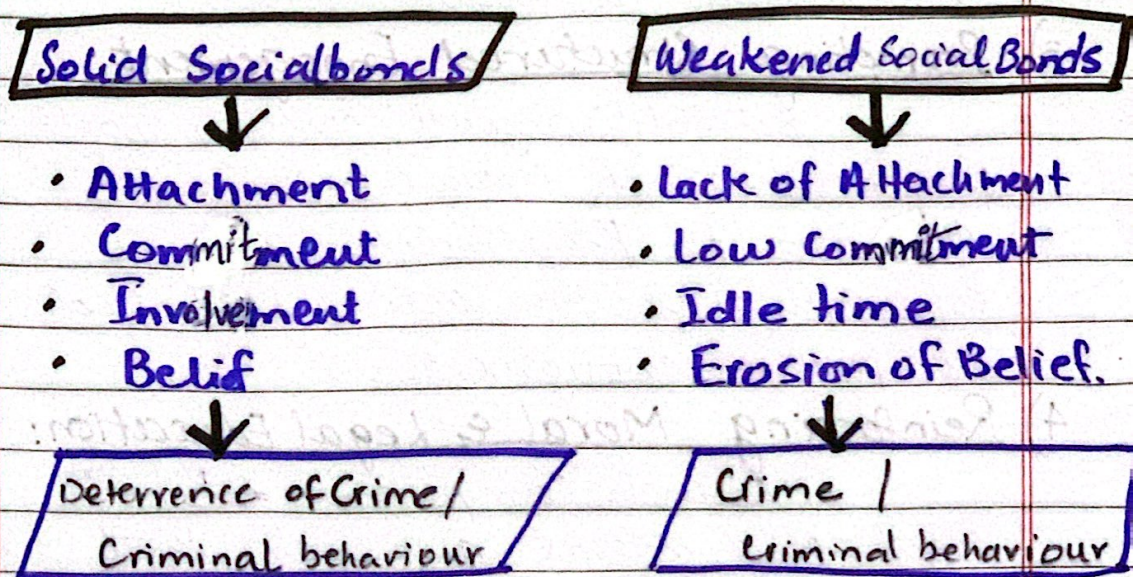 Solid Socialbonds
• Attachment
• Commitment
• Involvement
• Belif
Deterrence of Crime/
Criminal behaviour
Weakened Social Bonds
• Lack of Attachment
• Low Commitment
• Idle time
• Erosion of Belief.
Crime /
Criminal behaviour
Moral & Legal